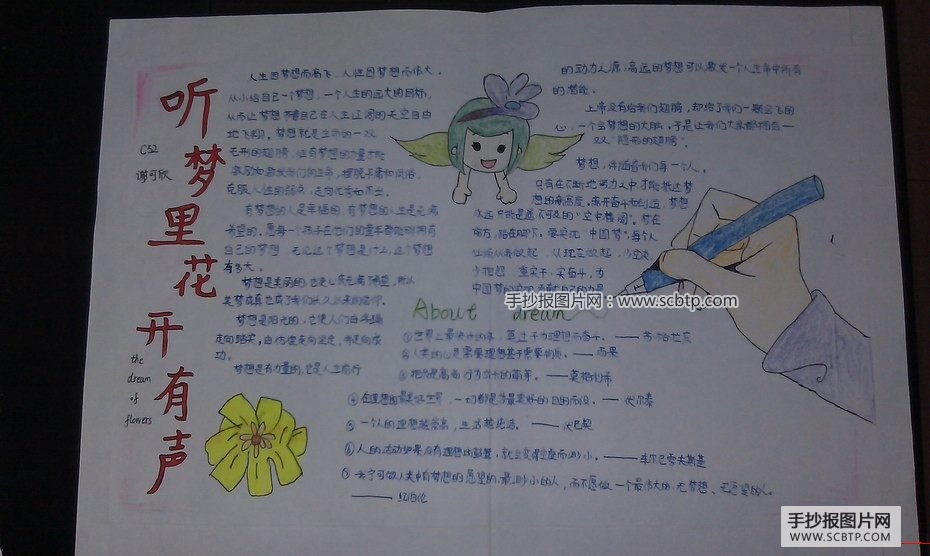 听梦里花开有声
C52
谢可欣
the
dream
of
flowers
人生因梦想而高飞，人性因梦想而伟大。
从小给自己一个梦想，一个人生的远大的目标，
从而让梦想带着自己在人生辽阔的天空自由
地飞翔。梦想就是生命的一双
有梦想的人是幸福的，有梦想的人生是充满
希望的。愿每一个孩子在他们的童年都能够拥有
自己的梦想，无论这个梦想是什么，这个梦想
有多大。
梦想是美丽的，它是心底
梦想是阳光的，它使人们由浮躁
走向踏实，由彷徨走向坚定，并走向成
功。
梦想是有力量的，它是人生前行
的动力之源；高远的梦想可以激发一个人生命中所有
的潜能。
上帝没有给我们翅膀，却给了我们一颗会飞的
心，一个会梦想的大脑，于是让我们大家都拥有一
双"隐形的翅膀"。
梦想，伴随着我们每一个人。
只有在不断地努力之中才能抵达梦
想的制高度，离开奋斗和创造，梦想
永远只能是遥不可及的"空中楼阁"。梦在
前方，路在脚下，要实现"中国梦"，每个人
应该从我做起，从现在做起，少空谈、
少抱怨，重实干、实奋斗，为
手抄报图片网：www.scbtp.com
About dream
①世界上最快乐的事，莫过于为理想而奋斗。——苏格拉底
——雨果
——莫格利希
④在理想的最美好世界，一切都是为最美好的目的而设。——伏尔泰
⑤一个人的理想越崇高，生活越纯洁。——伏尼契
⑥人的活动如果没有理想的鼓舞，就会变得空虚而渺小。——车尔尼雪夫斯基
⑦我宁可做人类中有梦想和愿望的、最渺小的人，而不愿做一个最伟大的、无梦想、无愿望的人。
——纪伯伦
手抄报图片网
WWW.SCBTP.COM